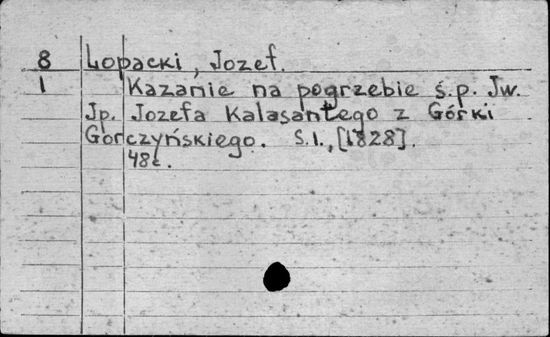 8 Lopacki, Jozef.
1 Kazanie na pogrzebie ś.p. Jw.
Jp. Jozefa Kalasantego z Górki
Gorczyńskiego. S.l., [1828].
48 c.